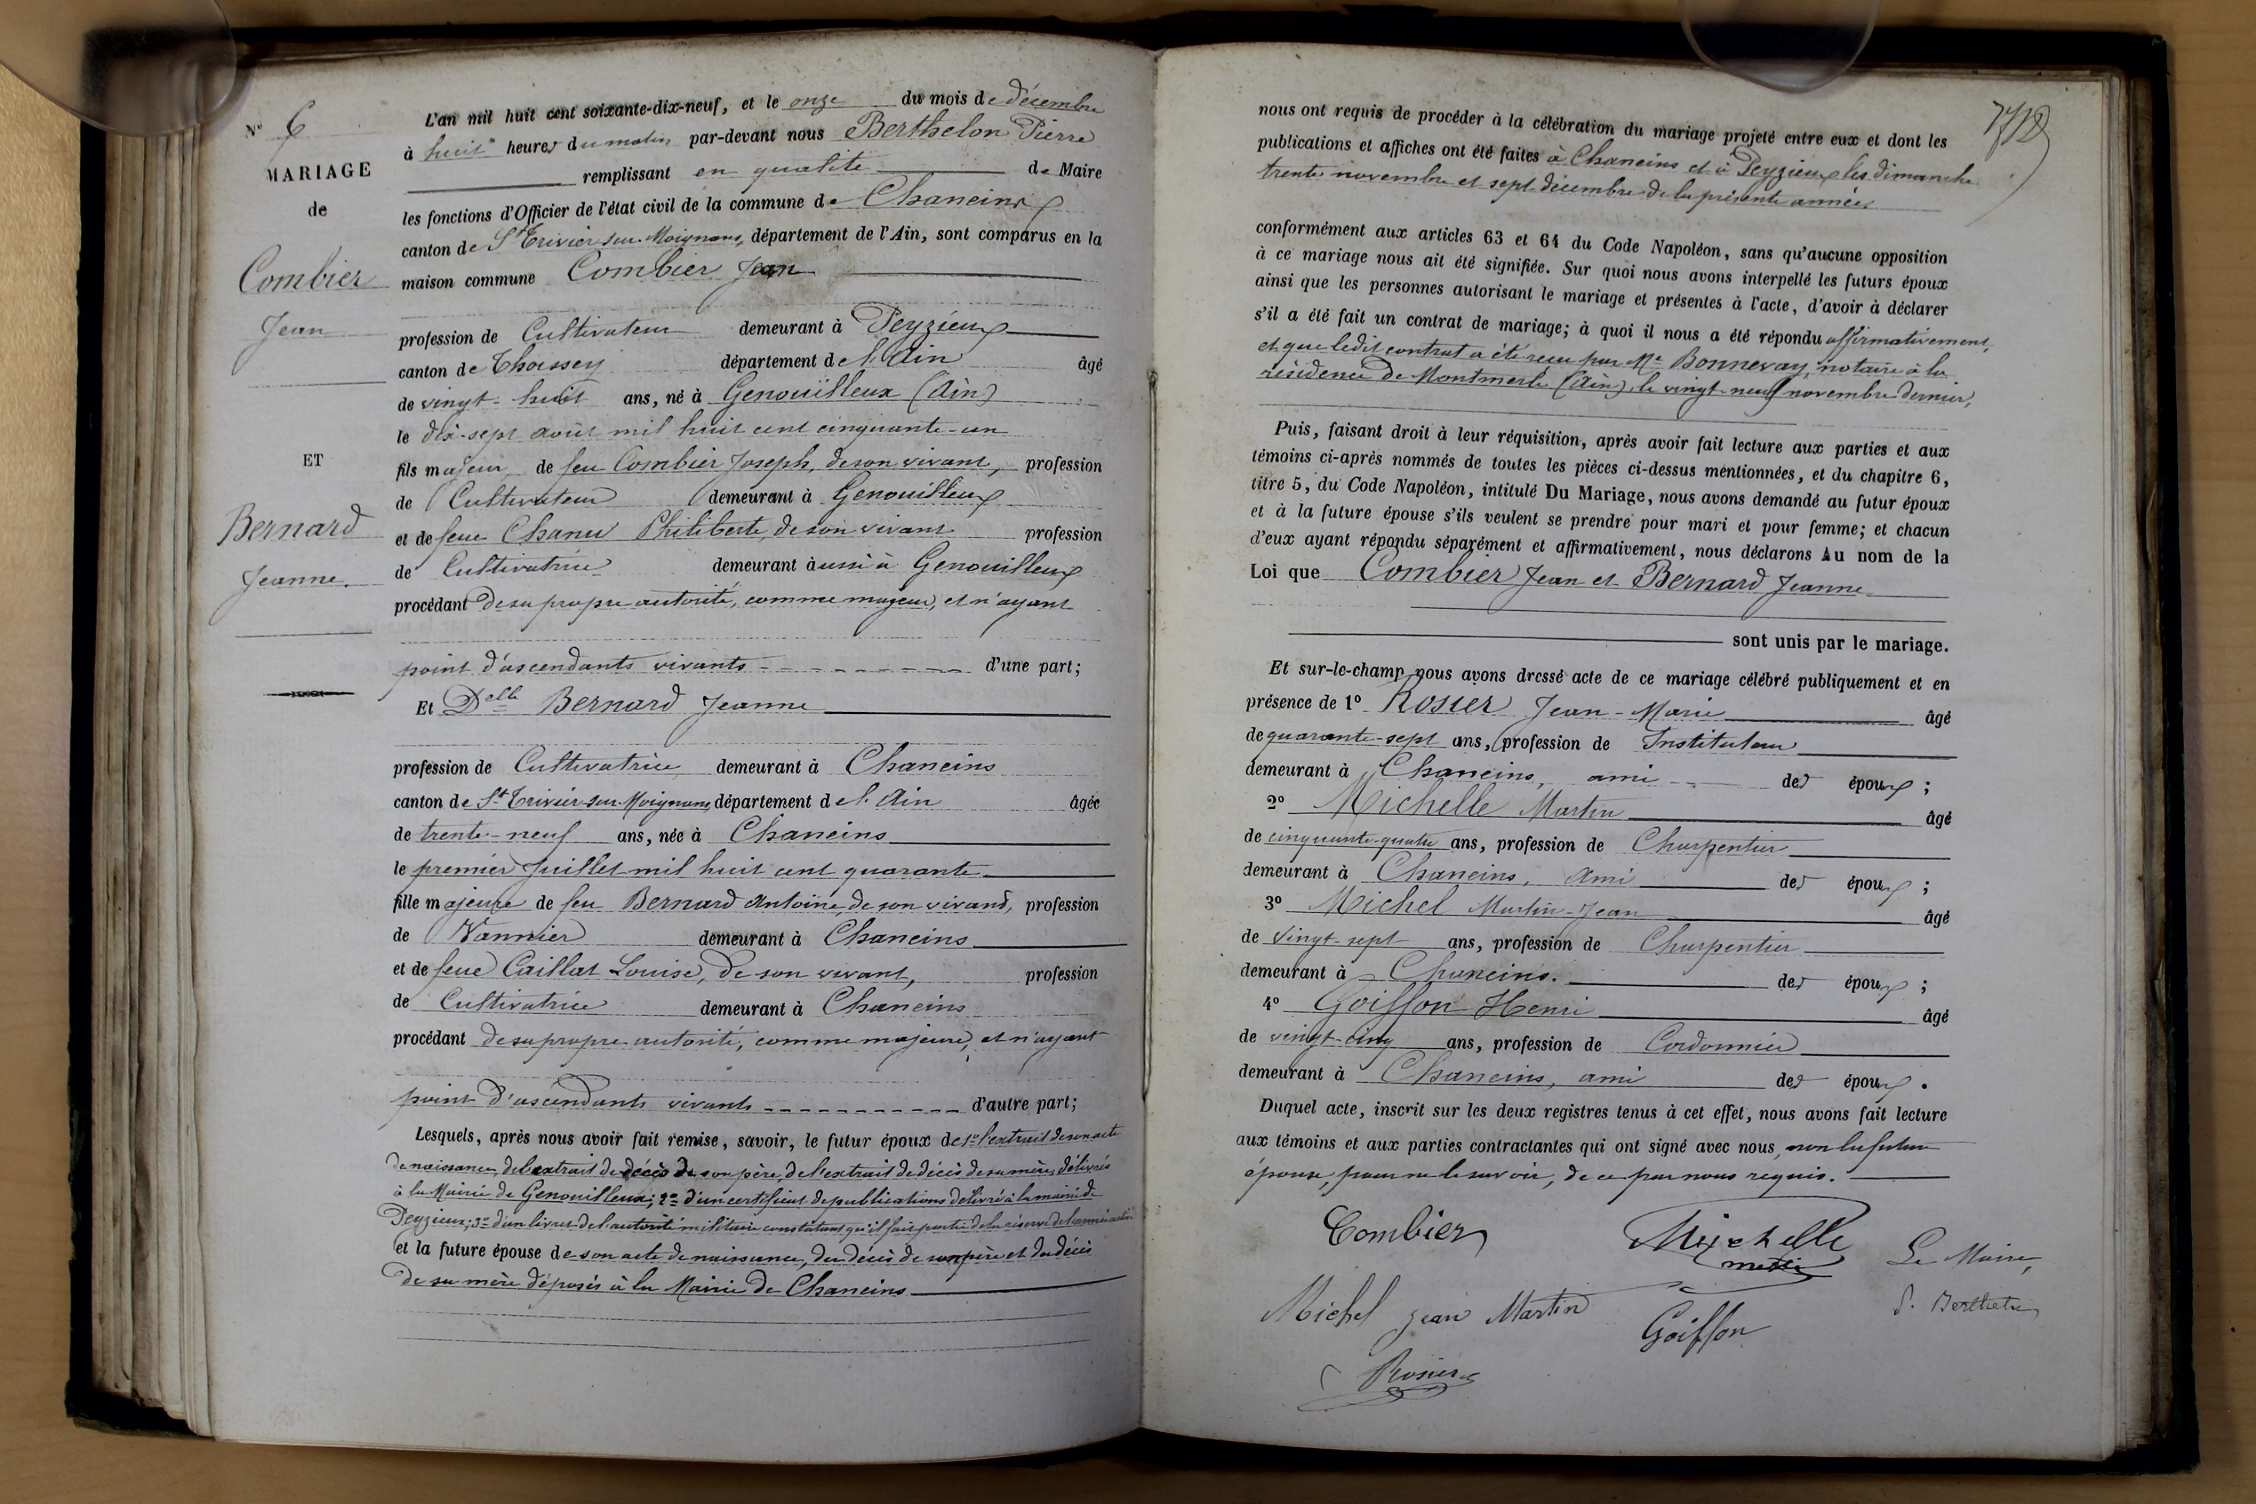 N° 6
MARIAGE
de
Combier
Jean
ET
Bernard
Jeanne.
L'an mil huit cent soixante-dix-neuf, et le onze du mois de décembre
à huit heures du matin par-devant nous Berthelon Pierre
remplissant en qualité de Maire
les fonctions d'Officier de l'état civil de la commune de Chaneins
canton de St Trivier-sur-Moignans, département de l'Ain, sont comparus en la
maison commune Combier Jean
profession de Cultivateur demeurant à Peyzieux
canton de Thoissey département de l'Ain âgé
de vingt-huit ans, né à Genouilleux (Ain)
le dix-sept août mil huit cent cinquante-un
fils majeur de feu Combier Joseph, de son vivant, profession
de Cultivateur demeurant à Genouilleux
et de feue Chanu Philiberte, de son vivant profession
de Cultivatrice demeurant aussi à Genouilleux
procédant de sa propre autorité, comme majeur, et n'ayant
point d'ascendants vivants d'une part;
Et Delle Bernard Jeanne
profession de Cultivatrice demeurant à Chaneins
canton de St Trivier-sur-Moignans département de l'Ain âgée
de trente-neuf ans, née à Chaneins
le premier Juillet mil huit cent quarante
fille majeure de feu Bernard Antoine, de son vivant, profession
de Vannier demeurant à Chaneins
et de feue Caillat Louise, de son vivant, profession
de Cultivatrice demeurant à Chaneins
procédant de sa propre autorité, comme majeure, et n'ayant
point d'ascendants vivants d'autre part;
Lesquels, après nous avoir fait remise, savoir, le futur époux de 1° l'extrait de son acte
de naissance, de l'extrait de décès de son père, de l'extrait de décès de sa mère, délivrés
à la Mairie de Genouilleux; 2° d'un certificat de publications délivré à la mairie de
Peyzieux; 3° d'un livret de l'autorité militaire constatant qu'il fait partie de la réserve de l'armée active
et la future épouse de son acte de naissance, du décès de son père et du décès
de sa mère déposés à la Mairie de Chaneins
nous ont requis de procéder à la célébration du mariage projeté entre eux et dont les
publications et affiches ont été faites à Chaneins et à Peyzieux les dimanche
trente novembre et sept décembre de la présente année
conformément aux articles 63 et 64 du Code Napoléon, sans qu'aucune opposition
à ce mariage nous ait été signifiée. Sur quoi nous avons interpellé les futurs époux
ainsi que les personnes autorisant le mariage et présentes à l'acte, d'avoir à déclarer
s'il a été fait un contrat de mariage; à quoi il nous a été répondu affirmativement,
et que ledit contrat a été reçu par Me Bonnevay, notaire à la
résidence de Montmerle (Ain), le vingt-neuf novembre dernier,
Puis, faisant droit à leur réquisition, après avoir fait lecture aux parties et aux
témoins ci-après nommés de toutes les pièces ci-dessus mentionnées, et du chapitre 6,
titre 5, du Code Napoléon, intitulé Du Mariage, nous avons demandé au futur époux
et à la future épouse s'ils veulent se prendre pour mari et pour femme; et chacun
d'eux ayant répondu séparément et affirmativement, nous déclarons Au nom de la
Loi que Combier Jean et Bernard Jeanne
sont unis par le mariage.
Et sur-le-champ nous avons dressé acte de ce mariage célébré publiquement et en
présence de 1° Rosier Jean-Marie âgé
de quarante-sept ans, profession de Instituteur
demeurant à Chaneins, ami des époux;
2° Michelle Martin âgé
de cinquante-quatre ans, profession de Charpentier
demeurant à Chaneins, ami des époux;
3° Michel Martin-Jean âgé
de vingt-sept ans, profession de Charpentier
demeurant à Chaneins. des époux;
4° Goiffon Henri âgé
de vingt-cinq ans, profession de Cordonnier
demeurant à Chaneins, ami des époux.
Duquel acte, inscrit sur les deux registres tenus à cet effet, nous avons fait lecture
aux témoins et aux parties contractantes qui ont signé avec nous, non la future
épouse, pour ne le savoir, de ce par nous requis.
Combier
Michelle
Le Maire,
Michel Jean Martin
Goiffon
P. Berthelon
Rosier